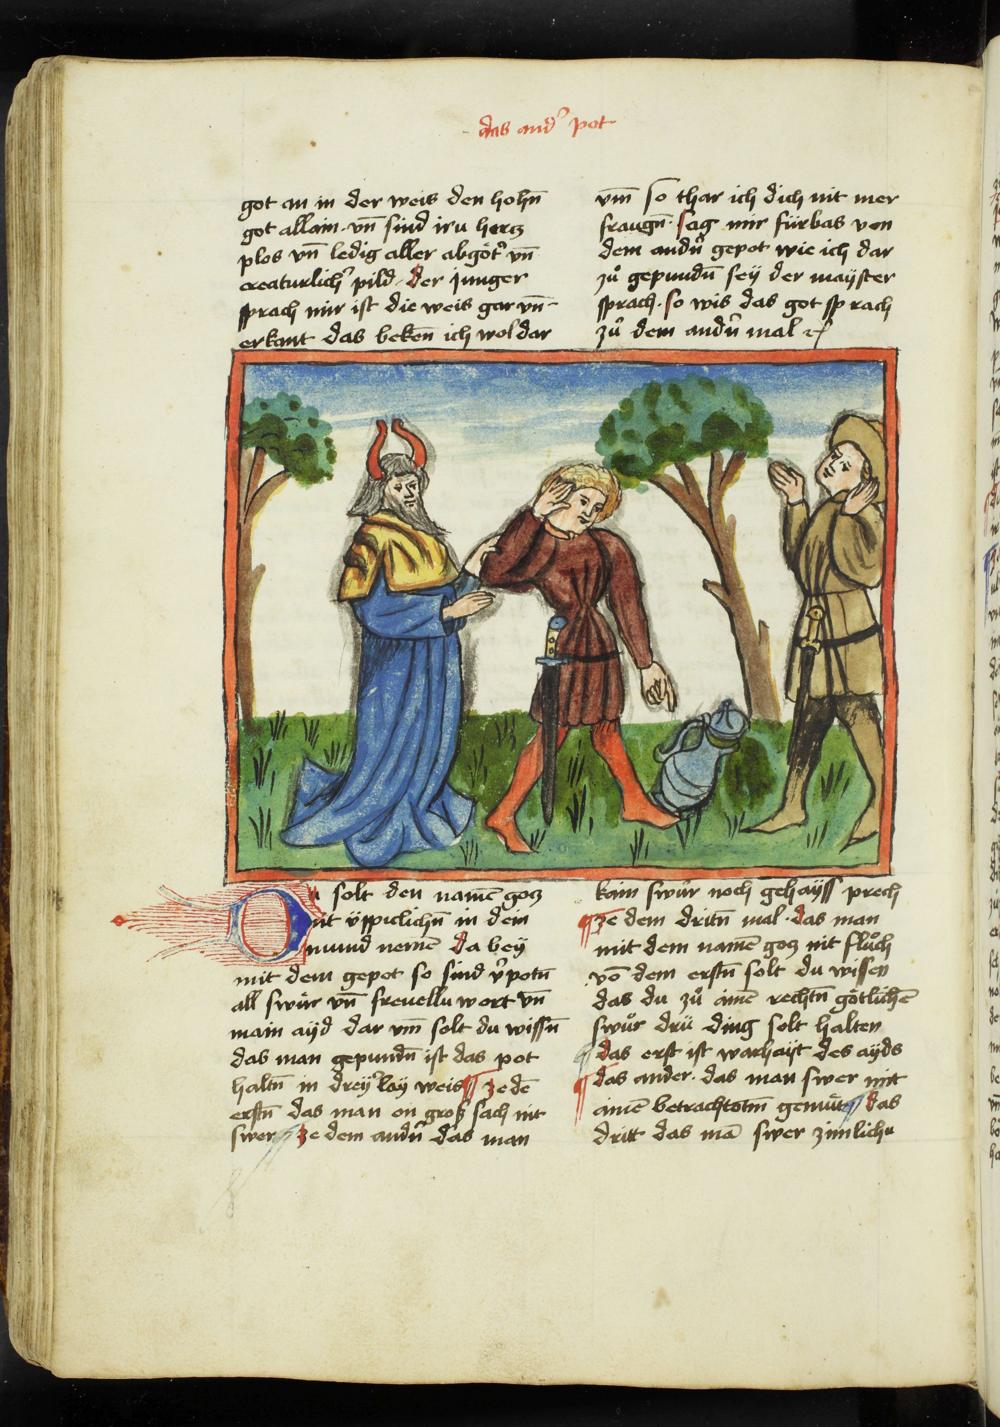 das and᷑ pot
got an in der weis den hohn̄
got allain · vn̄ sind irn hercz
plos vn̄ ledig aller abgöt᷑ vn̄
creaturlich᷑ pild · der junger
sprach mir ist die weis gar vn̄
erkant das beken̄ ich wol dar
vm̄ so thar ich dich nit mer
fraugn̄ · sag mir fürbas von
dem andn̄ gepot wie ich dar
zů gepundn̄ sey der mayster
sprach · so wis das got sprach
zů dem andn̄ mal
Du solt den namē gocz
nit üppiclichn̄ in dein
mund nemē da bey
mit dem gepot so sind v᷑potn̄
all swür vn̄ freuelln wort vn̄
main ayd dar vm̄ solt du wissn̄
das man gepundn̄ ist das pot
haltn̄ in drey᷑lay weis ¶ ze dē
erstn̄ das man on groß sach nit
swer ¶ ze dem andn̄ das man
kain swůr noch gehayss prech
¶ ze dem dritn̄ mal · das man
mit dem namen gocz nit flůch
vō dem erstn̄ solt du wissen
das du zů ainē rechtn̄ götlichē
swůr drü ding solt halten
¶ das erst ist warhayt des ayds
¶ das ander · das man swer mit
ainē betrachtotm̄ gemüt ¶ das
dritt das mā swer zimlichn